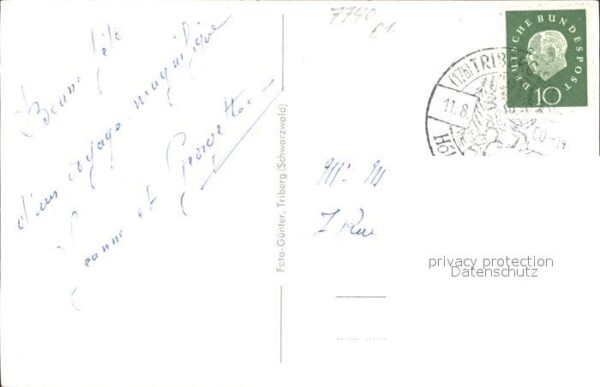 Bonne fête
d'un voyage magnifique
Jeanne et Georgette
Foto-Günter, Triberg (Schwarzwald)
7740
(17b) TRIBERG
11.8.
DEUTSCHE BUNDESPOST
10
Mr M
7 Rue
privacy protection
Datenschutz